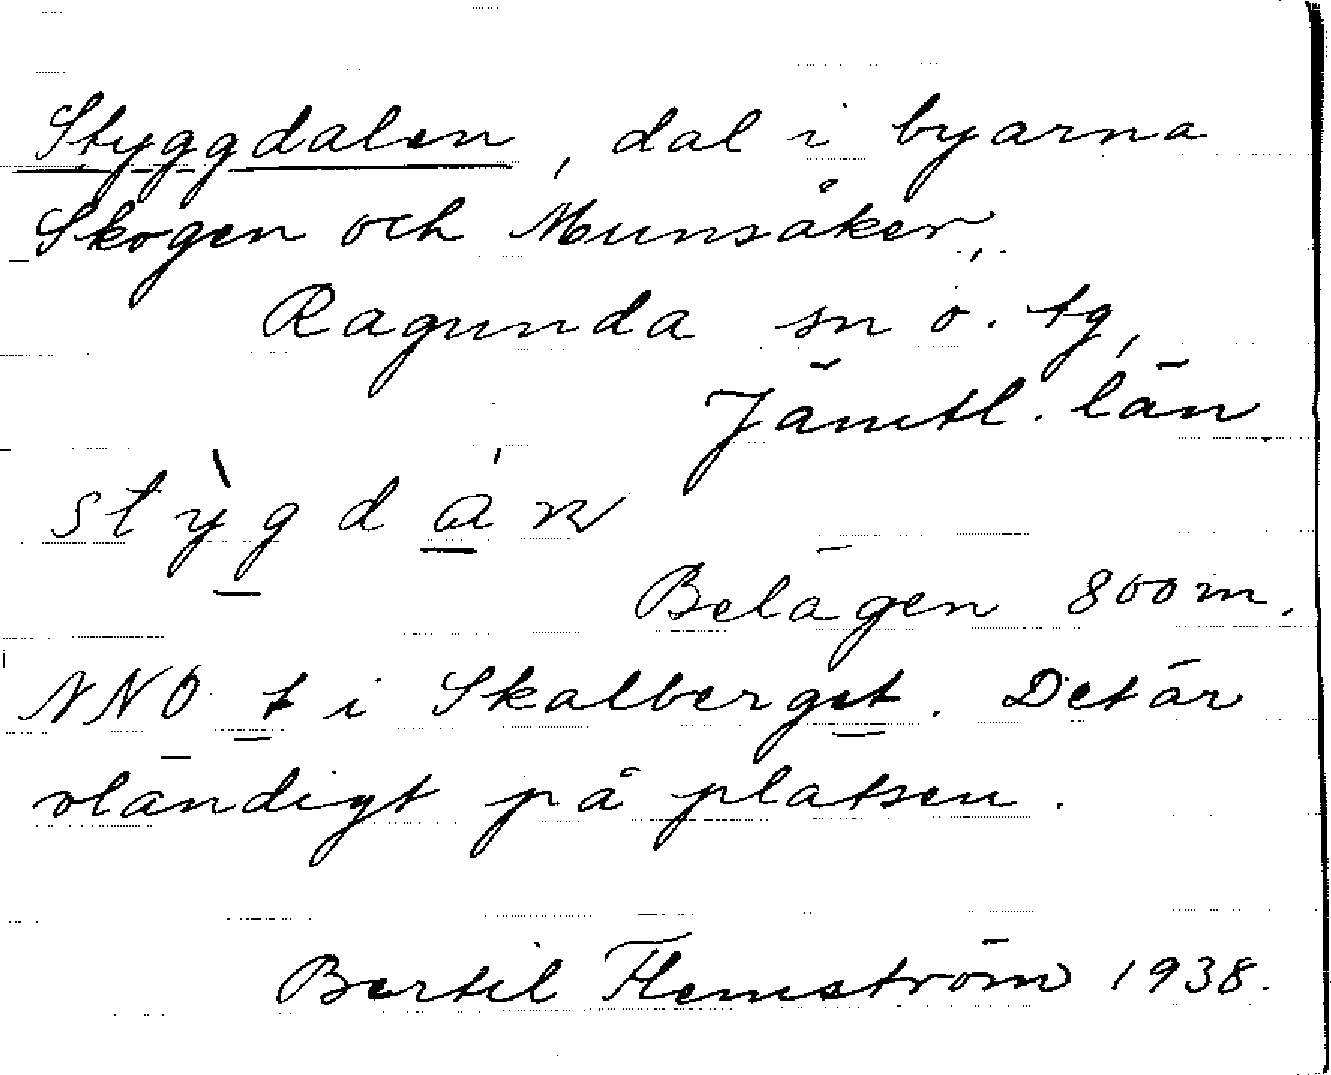 Styggdalen, dal i byarna
Skogen och Munsåker,
Ragunda sn ö. tg,
Jämtl. län
stỳgdán
Belägen 800 m.
NNO t i Skalberget. Det är
vländigt på platsen.
Bertil Flemström 1938.